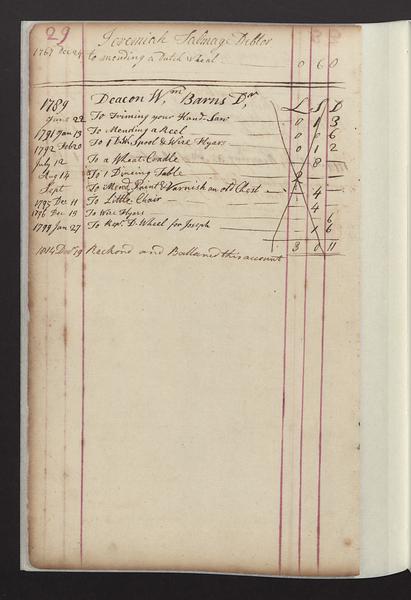 29
Jeremiah Talmage Debtor
1767 Dec 24 to mending a Dutch wheal 0 6 0
1789 Deacon Wm Barns Dr L S D
June 22 To Triming your Hand Saw 0 1 3
1791 Jan 13 To Mending a Reel 0 0 6
1792 Feb 20 To Spool & Wire Flyers 0 1 2
July 12 To a Wheat Cradle 8
Aug 14 To 1 Dineing Table
Sept To Mend Paint & Varnish an old Chest 4
1795 Dec 11 To Little Chair 4
1796 Dec 13 To Wire Flyers 6
1799 Jan 27 To Repr D. Wheel for Joseph 1 6
3 0 11
1814 Decr 19 Reckond and Ballancd this account